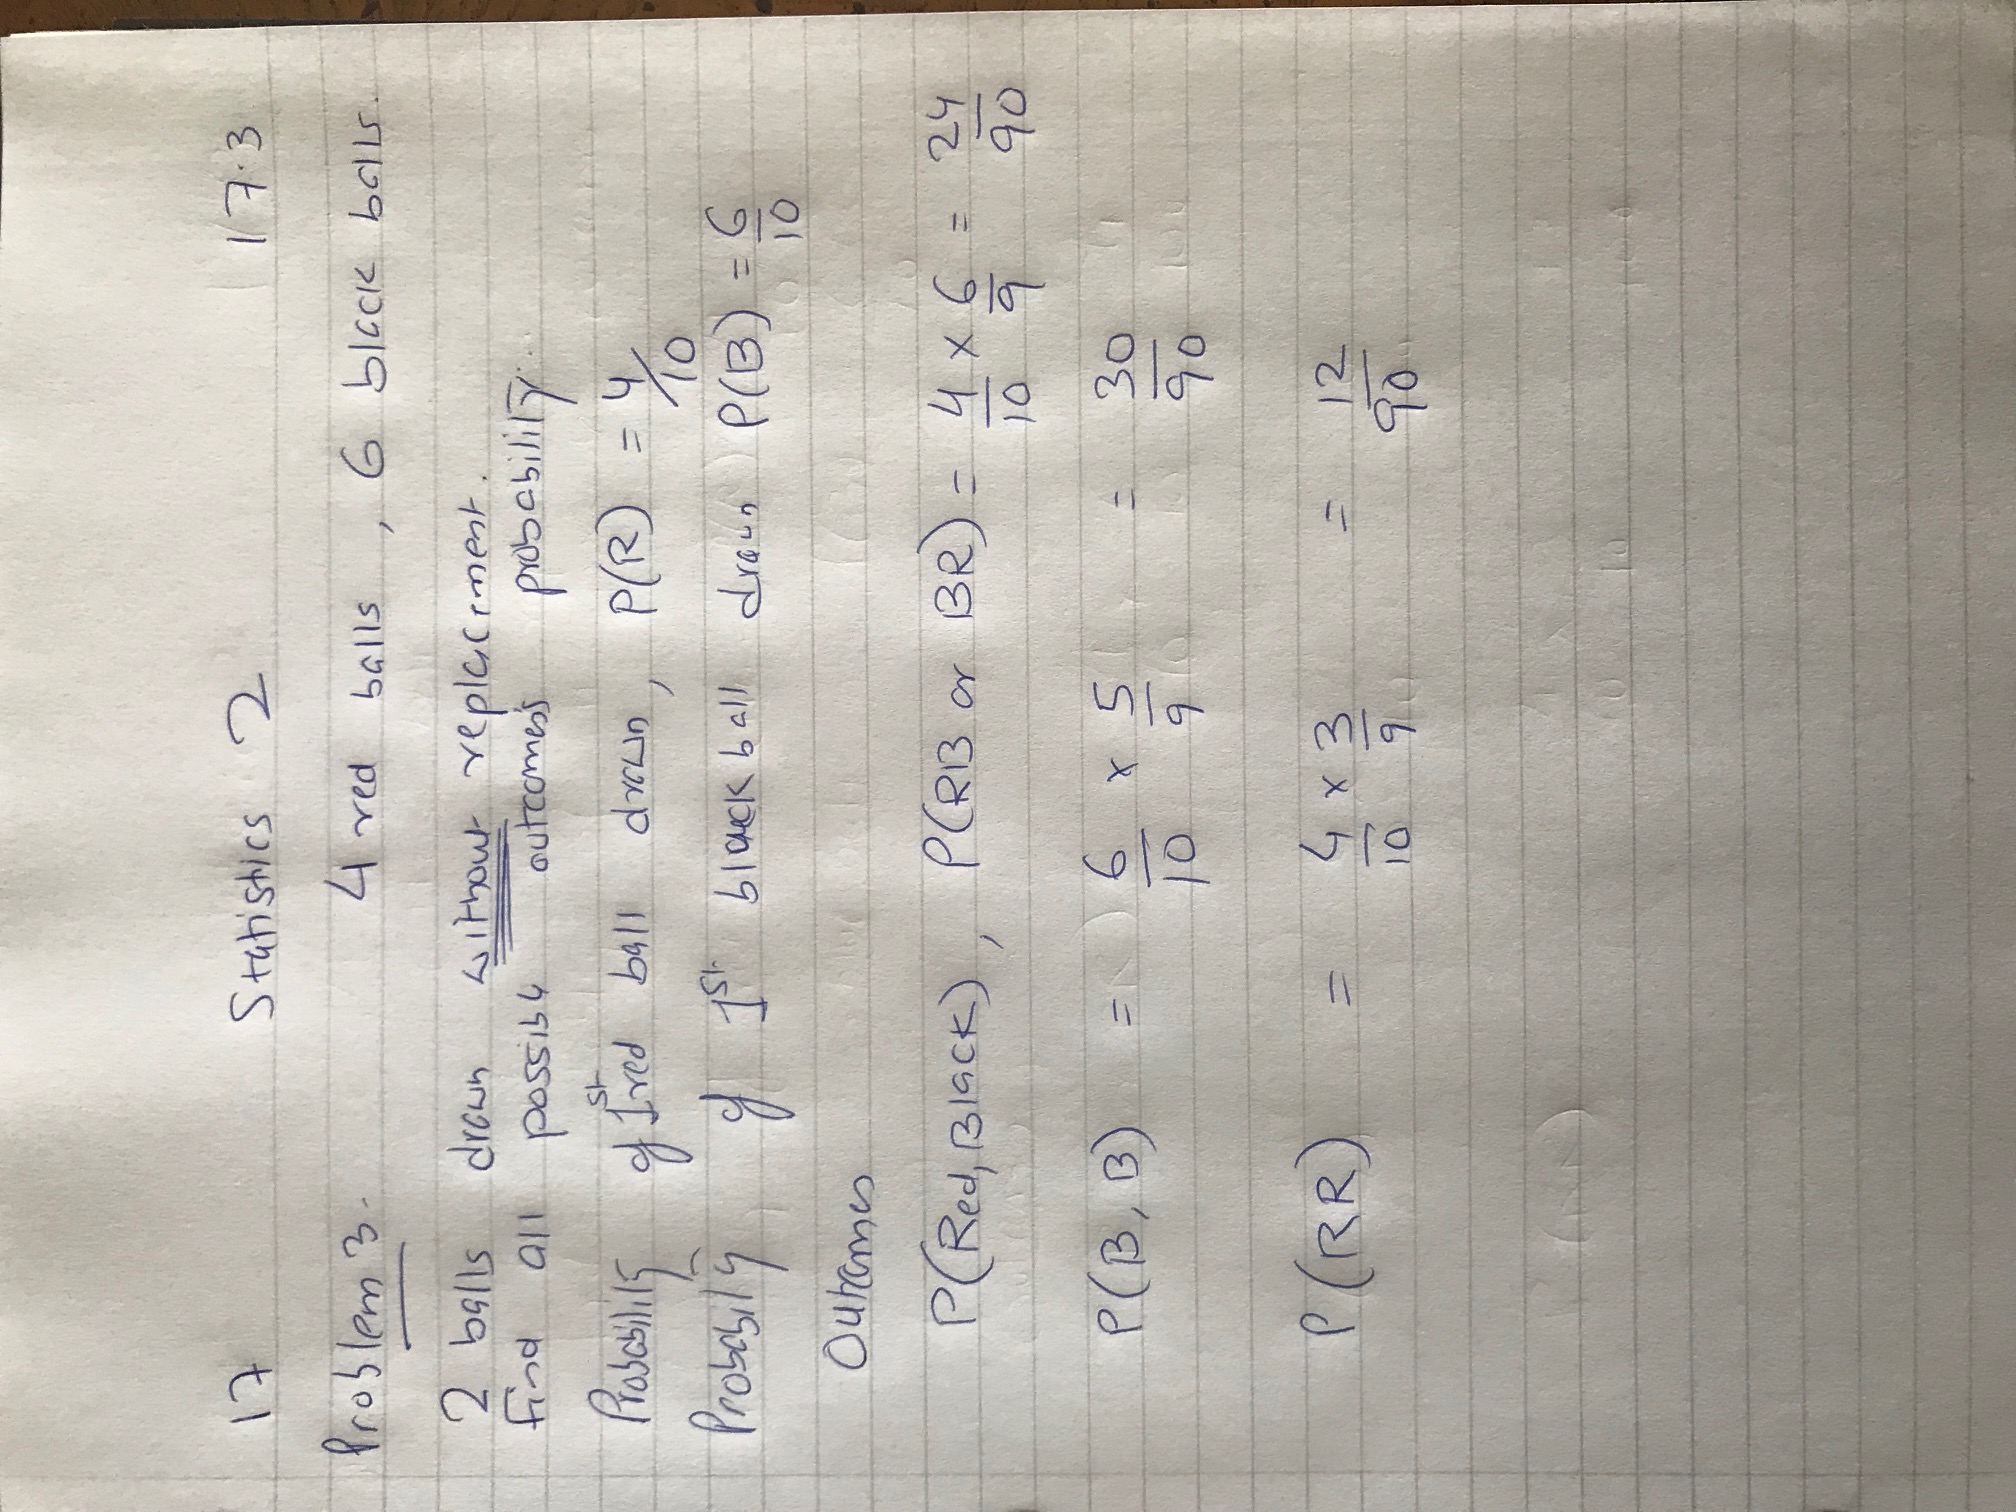 17 Statistics 2 17.3
Problem 3. 4 red balls, 6 black balls.
2 balls drawn without replacement.
Find all possible outcomes's probability.
Probability of 1st red ball drawn, P(R) = 4/10
Probability of 1st black ball drawn P(B) = 6/10
Outcomes
P(Red, Black), P(RB or BR) = 4/10 x 6/9 = 24/90
P(B, B) = 6/10 x 5/9 = 30/90
P(RR) = 4/10 x 3/9 = 12/90